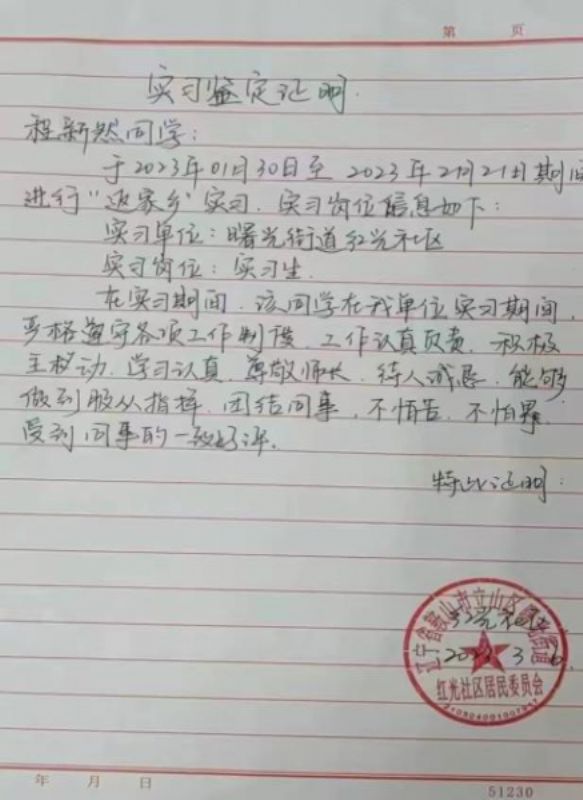 第 页
实习鉴定证明
程新然同学：
于2023年01月30日至2023年2月21日期间
进行“返家乡”实习．实习岗位信息如下：
实习单位：曙光街道红光社区
实习岗位：实习生．
在实习期间，该同学在我单位实习期间，
严格遵守各项工作制度，工作认真负责，积极
主动，学习认真，尊敬师长，待人诚恳，能够
做到服从指挥，团结同事，不怕苦、不怕累，
受到同事的一致好评．
特此证明．
辽宁省鞍山市立山区曙光街道
红光社区
3
红光社区居民委员会
年 月 日
51230